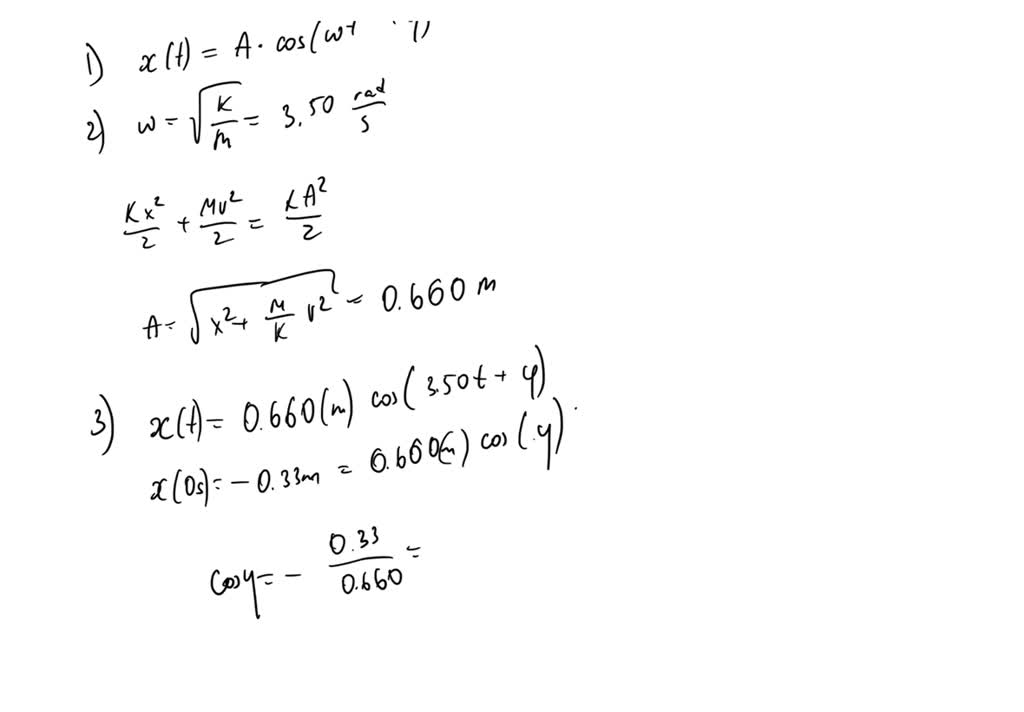 1) x(t) = A · cos(ωt
2) ω = √(K/m) = 3.50 rad/s
Kx²/2 + Mv²/2 = KA²/2
A = √(x² + M/K v²) = 0.660 m
3) x(t) = 0.660(m) cos(3.50t + φ)
x(0s) = - 0.33m = 0.660(m) cos(φ)
cosφ = - 0.33/0.660 =